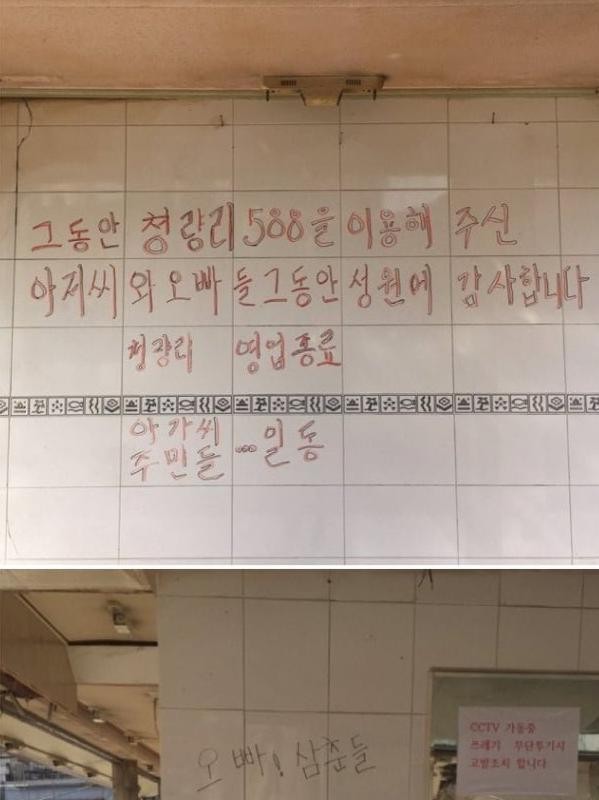 그동안 청량리 588을 이용해 주신
아저씨 와 오빠 들 그동안 성원에 감사합니다
청량리 영업종료
아가씨
주민들 ... 일동
오빠! 삼춘들
CCTV 가동중
쓰레기 무단투기시
고발조치 합니다